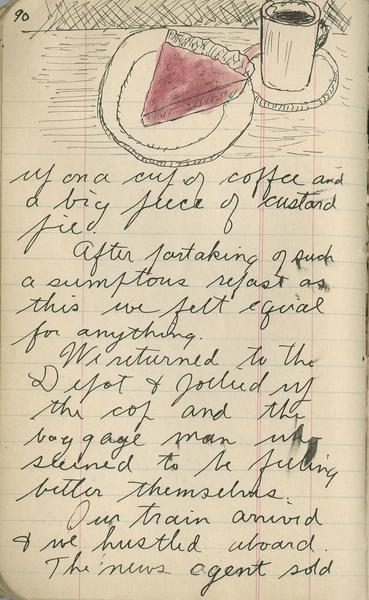 90
up on a cup of coffee and
a big piece of custard
pie.
After partaking of such
a sumptous repast as
this we felt equal
for anything.
We returned to the
Depot & jollied up
the cop and the
baggage man who
seemed to be feeling
better themselves.
Our train arrived
& we hustled aboard.
The news agent sold